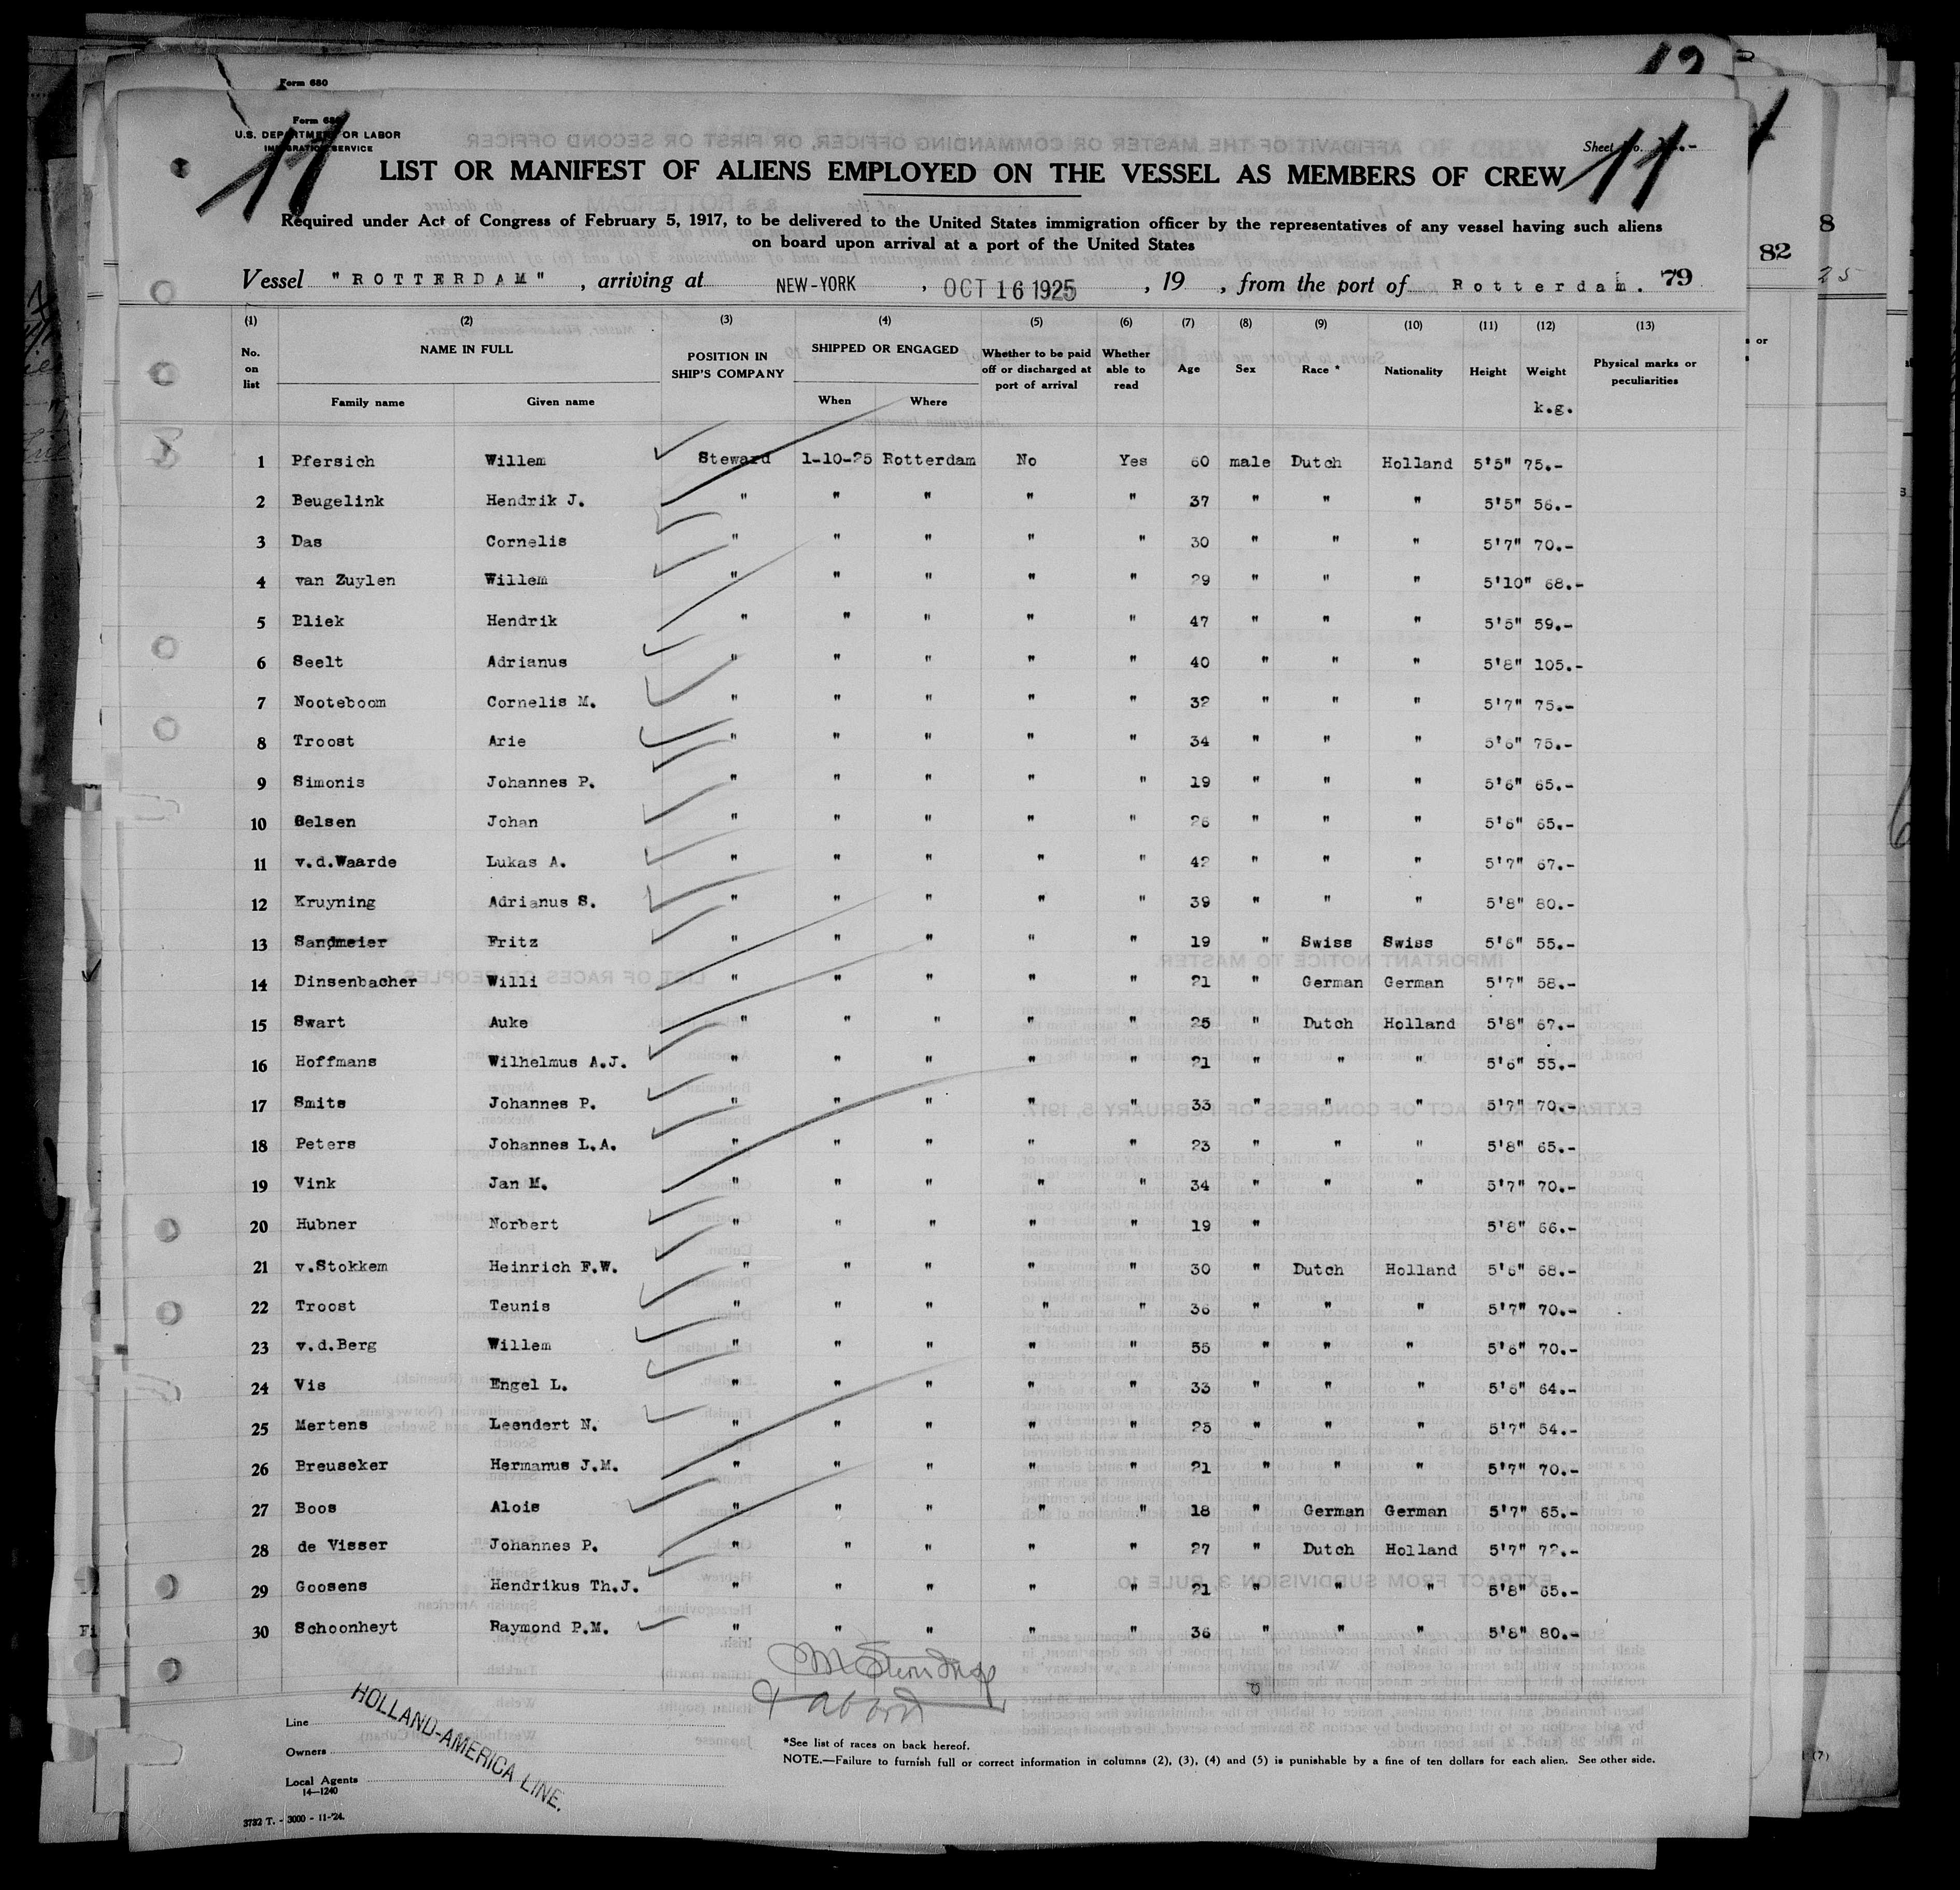 Form 680
12
Form 68
U.S. DEPARTMENT OR LABOR
IMMIGRATION SERVICE
11
Sheet No.
11
LIST OR MANIFEST OF ALIENS EMPLOYED ON THE VESSEL AS MEMBERS OF CREW
Required under Act of Congress of February 5, 1917, to be delivered to the United States immigration officer by the representatives of any vessel having such aliens
on board upon arrival at a port of the United States
8
82
Vessel "ROTTERDAM", arriving at NEW-YORK, OCT 16 1925, 19 , from the port of Rotterdam. 79
(1) (2) (3) (4) (5) (6) (7) (8) (9) (10) (11) (12) (13)
No. on list NAME IN FULL POSITION IN SHIP'S COMPANY SHIPPED OR ENGAGED Whether to be paid off or discharged at port of arrival Whether able to read Age Sex Race * Nationality Height Weight Physical marks or peculiarities
Family name Given name When Where k.g.
1 Pfersich Willem Steward 1-10-25 Rotterdam No Yes 60 male Dutch Holland 5'5" 75.-
2 Beugelink Hendrik J. " " " " " 37 " " " 5'5" 56.-
3 Das Cornelis " " " " " 30 " " " 5'7" 70.-
4 van Zuylen Willem " " " " " 29 " " " 5'10" 68.-
5 Bliek Hendrik " " " " " 47 " " " 5'5" 59.-
6 Seelt Adrianus " " " " " 40 " " " 5'8" 105.-
7 Nooteboom Cornelis M. " " " " " 32 " " " 5'7" 75.-
8 Troost Arie " " " " " 34 " " " 5'6" 75.-
9 Simonis Johannes P. " " " " " 19 " " " 5'6" 65.-
10 Selsen Johan " " " " " 26 " " " 5'6" 65.-
11 v.d.Waarde Lukas A. " " " " " 42 " " " 5'7" 67.-
12 Kruyning Adrianus S. " " " " " 39 " " " 5'8" 80.-
13 Sandmeier Fritz " " " " " 19 " Swiss Swiss 5'6" 55.-
14 Dinsenbacher Willi " " " " " 21 " German German 5'7" 58.-
15 Swart Auke " " " " " 25 " Dutch Holland 5'8" 67.-
16 Hoffmans Wilhelmus A.J. " " " " " 21 " " " 5'6" 55.-
17 Smits Johannes P. " " " " " 33 " " " 5'7" 70.-
18 Peters Johannes L.A. " " " " " 23 " " " 5'8" 65.-
19 Vink Jan M. " " " " " 34 " " " 5'7" 70.-
20 Hubner Norbert " " " " " 19 " 5'8" 66.-
21 v.Stokkem Heinrich F.W. " " " " " 30 " Dutch Holland 5'6" 68.-
22 Troost Teunis " " " " " 36 " " " 5'7" 70.-
23 v.d.Berg Willem " " " " " 55 " " " 5'6" 70.-
24 Vis Engel L. " " " " " 33 " " " 5'6" 64.-
25 Mertens Leendert N. " " " " " 25 " " " 5'7" 54.-
26 Breuseker Hermanus J.M. " " " " " 21 " " " 5'7" 70.-
27 Boos Alois " " " " " 18 " German German 5'7" 65.-
28 de Visser Johannes P. " " " " " 27 " Dutch Holland 5'7" 72.-
29 Goosens Hendrikus Th.J. " " " " " 21 " " " 5'8" 65.-
30 Schoonheyt Raymond P.M. " " " " " 36 " " " 5'8" 80.-
Line
Owners
Local Agents
14—1240
HOLLAND-AMERICA LINE.
*See list of races on back hereof.
NOTE.—Failure to furnish full or correct information in columns (2), (3), (4) and (5) is punishable by a fine of ten dollars for each alien. See other side.
3732 T. - 3000 - 11-'24.